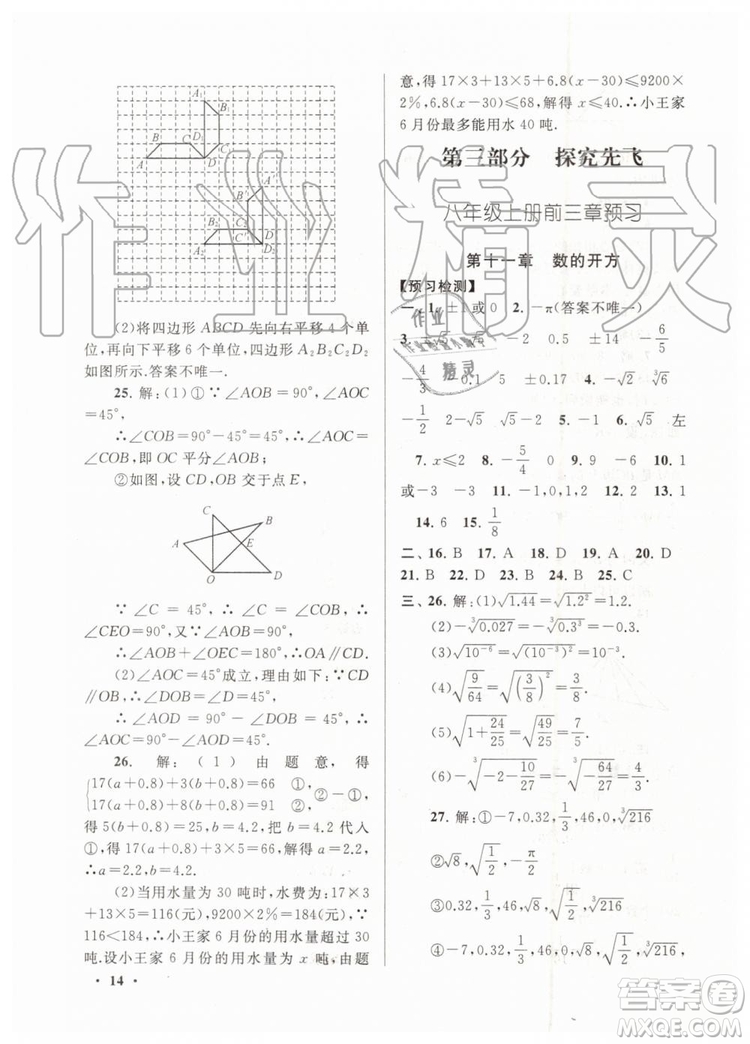 A₁ B₁
B C D₁
A D
B′ A′
C′ D
A₂ D₂
(2)将四边形 ABCD 先向右平移 4 个单
位,再向下平移 6 个单位,四边形 A₂B₂C₂D₂
如图所示.答案不唯一.
25. 解:(1)① ∵ ∠AOB = 90°,∠AOC
= 45°
∴ ∠COB = 90° − 45° = 45°,∴ ∠AOC
= ∠COB,即 OC 平分 ∠AOB
②如图,设 CD,OB 交于点 E,
C
B
A
E
O
D
∵ ∠C = 45° ∴ ∠C = ∠COB,∴
∠CEO=90°,又∵∠AOB=90°
∴ ∠AOB + ∠OEC = 180°,∴ OA∥CD
(2)∠AOC=45°成立,理由如下:∵CD
∥OB,∴ ∠DOB = ∠D = 45°
∴ ∠AOD = 90° − ∠DOB = 45°
∴ ∠AOC = 90° − ∠AOD = 45°
26. 解:(1)由题意,得
17(a+0.8)+3(b+0.8)=66 ①,
17(a+0.8)+8(b+0.8)=91 ②,
②−①,
得 5(b + 0.8) = 25,b = 4.2,把 b = 4.2 代入
①,得 17(a+0.8)+3×5=66,解得 a=2.2,
∴a=2.2,b=4.2
(2)当用水量为 30 吨时,水费为:17×3
+13×5=116(元),9200×2%=184(元),∵
116<184,∴小王家 6 月份的用水量超过 30
吨.设小王家 6 月份的用水量为 x 吨,由题
• 14 •
意,得 17×3+13×5+6.8(x−30)≤9200×
2%,6.8(x−30)≤68,解得 x≤40.∴小王家
6 月份最多能用水 40 吨.
第三部分 探究先飞
八年级上册前三章预习
第十一章 数的开方
【预习检测】
一、1. ±1 或 0 2. −π(答案不唯一)
−2 ±14 −6/5
−4/3 −0.5 ±0.17 4. −√2 √3
−1/2 2−√5 √5−2 5. −1 6. √5 左
7. x≤2 −5/4 0 8. 9 9. −6 10. 1
或−3 −3 11. −1,0,1,2 12. 3 13. 1
14. 6 15. 1/8
二、16. B 17. D 18. B 19. A 20. D
21. B 22. D 23. B 24. B 25. C
三、26. 解:(1)√1.44 = √1.2² = 1.2.
(2)−∛0.027 = −∛0.3³ = −0.3.
(3)√10⁻⁶ = √(10⁻³)² = 10⁻³.
(4)√9/64 = √(3/8)² = 3/8.
(5)√1+24/25 = √49/25 = 7/5.
27. 解:①−7,0.32,1/3,46,0,∛216
④−7,0.32,1/3,46,∛216,
作业精灵
作业
精灵
答案圈
MXQE.COM